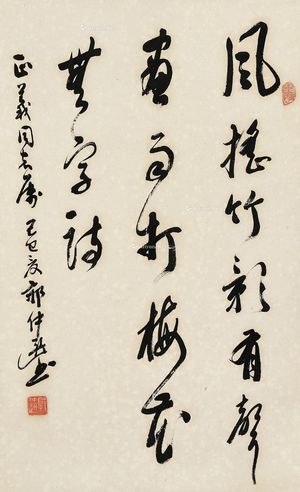 風搖竹影有聲
畫雨打梅花
無字詩
正義同志屬 己巳夏 郝仲